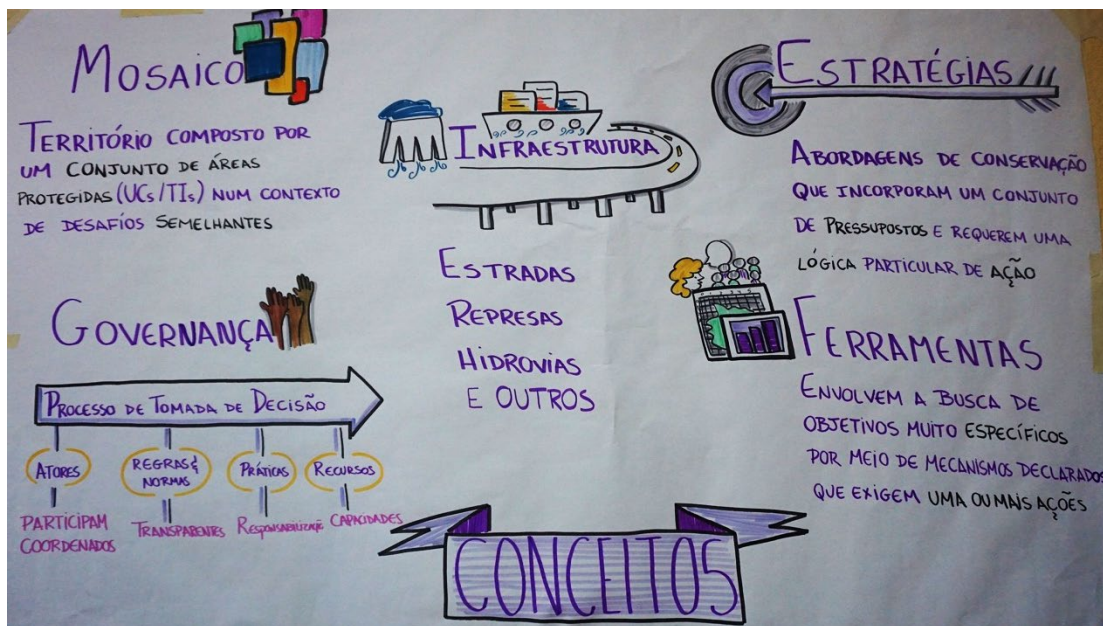 MOSAICO
TERRITÓRIO COMPOSTO POR
UM CONJUNTO DE ÁREAS
PROTEGIDAS (UCs/TIs) NUM CONTEXTO
DE DESAFIOS SEMELHANTES
GOVERNANÇA
PROCESSO DE TOMADA DE DECISÃO
ATORES
REGRAS &
NORMAS
PRÁTICAS
RECURSOS
PARTICIPAM
COORDENADOS
TRANSPARENTES
CAPACIDADES
INFRAESTRUTURA
ESTRADAS
REPRESAS
HIDROVIAS
E OUTROS
ESTRATÉGIAS
ABORDAGENS DE CONSERVAÇÃO
QUE INCORPORAM UM CONJUNTO
DE PRESSUPOSTOS E REQUEREM UMA
LÓGICA PARTICULAR DE AÇÃO
FERRAMENTAS
ENVOLVEM A BUSCA DE
OBJETIVOS MUITO ESPECÍFICOS
POR MEIO DE MECANISMOS DECLARADOS
QUE EXIGEM UMA OU MAIS AÇÕES
CONCEITOS